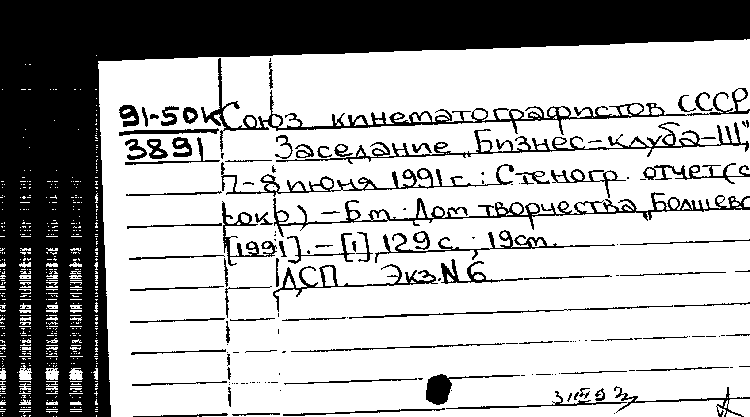 91-50К Союз кинематографистов СССР
3891 Заседание „Бизнес-клуба-III",
7-8 июня 1991 г.: Стеногр. отчет (с
сокр.) – Б.м.: Дом творчества „Болшево
[1991]. – [1], 129 с.; 19 см.
ДСП. Экз. N 6